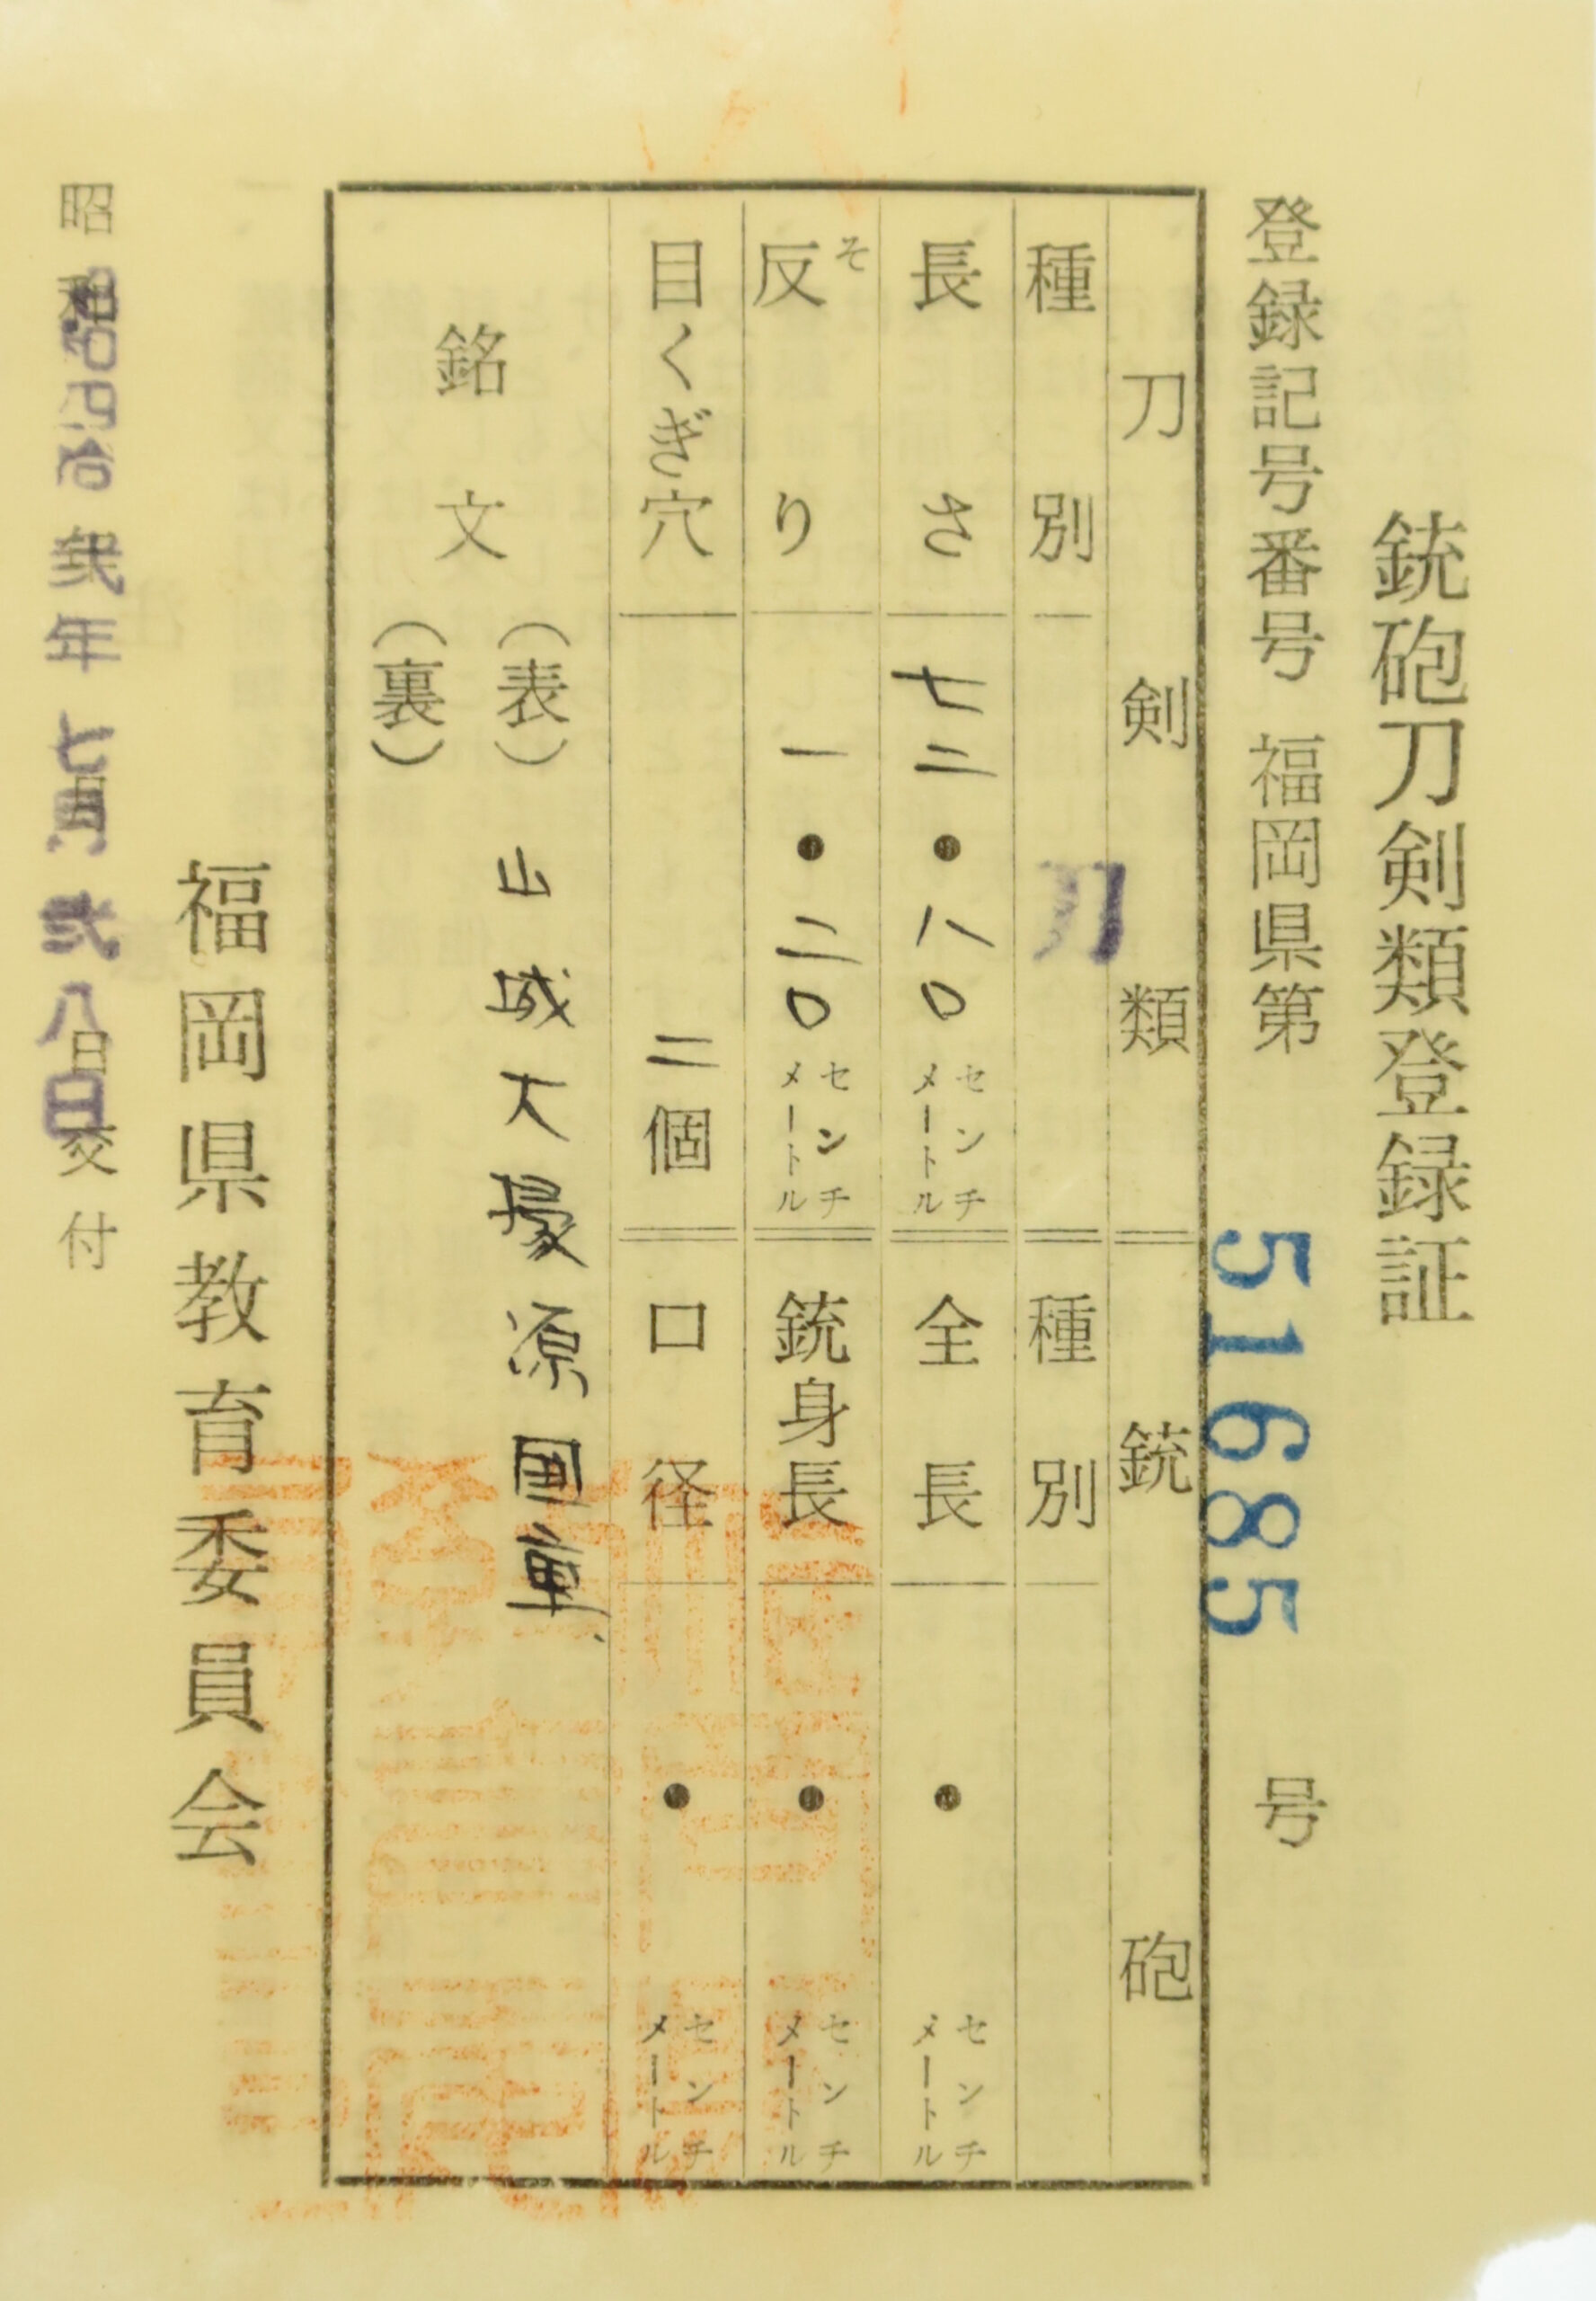 銃砲刀剣類登録証
登録記号番号 福岡県第 51685 号
刀剣類 銃砲
種別 刀 種別
長さ 七二・八〇 センチメートル 全長 ・ センチメートル
反り 一・二〇 センチメートル 銃身長 ・ センチメートル
そ
目くぎ穴 二個 口径 ・ センチメートル
銘文 (表) 山城大掾源国重
(裏)
福岡県教育委員会
昭和 昭和四拾弐年七月弐八日 交付